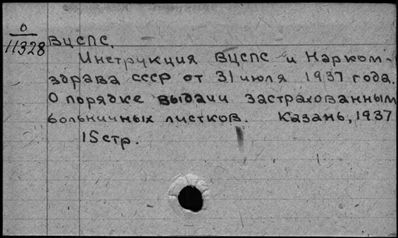 0
11328
ВЦСПС.
Инструкция ВЦСПС и Нарком-
здрава СССР от 31 июля 1937 года.
О порядке выдачи застрахованным
больничных листков. Казань, 1937
15 стр.